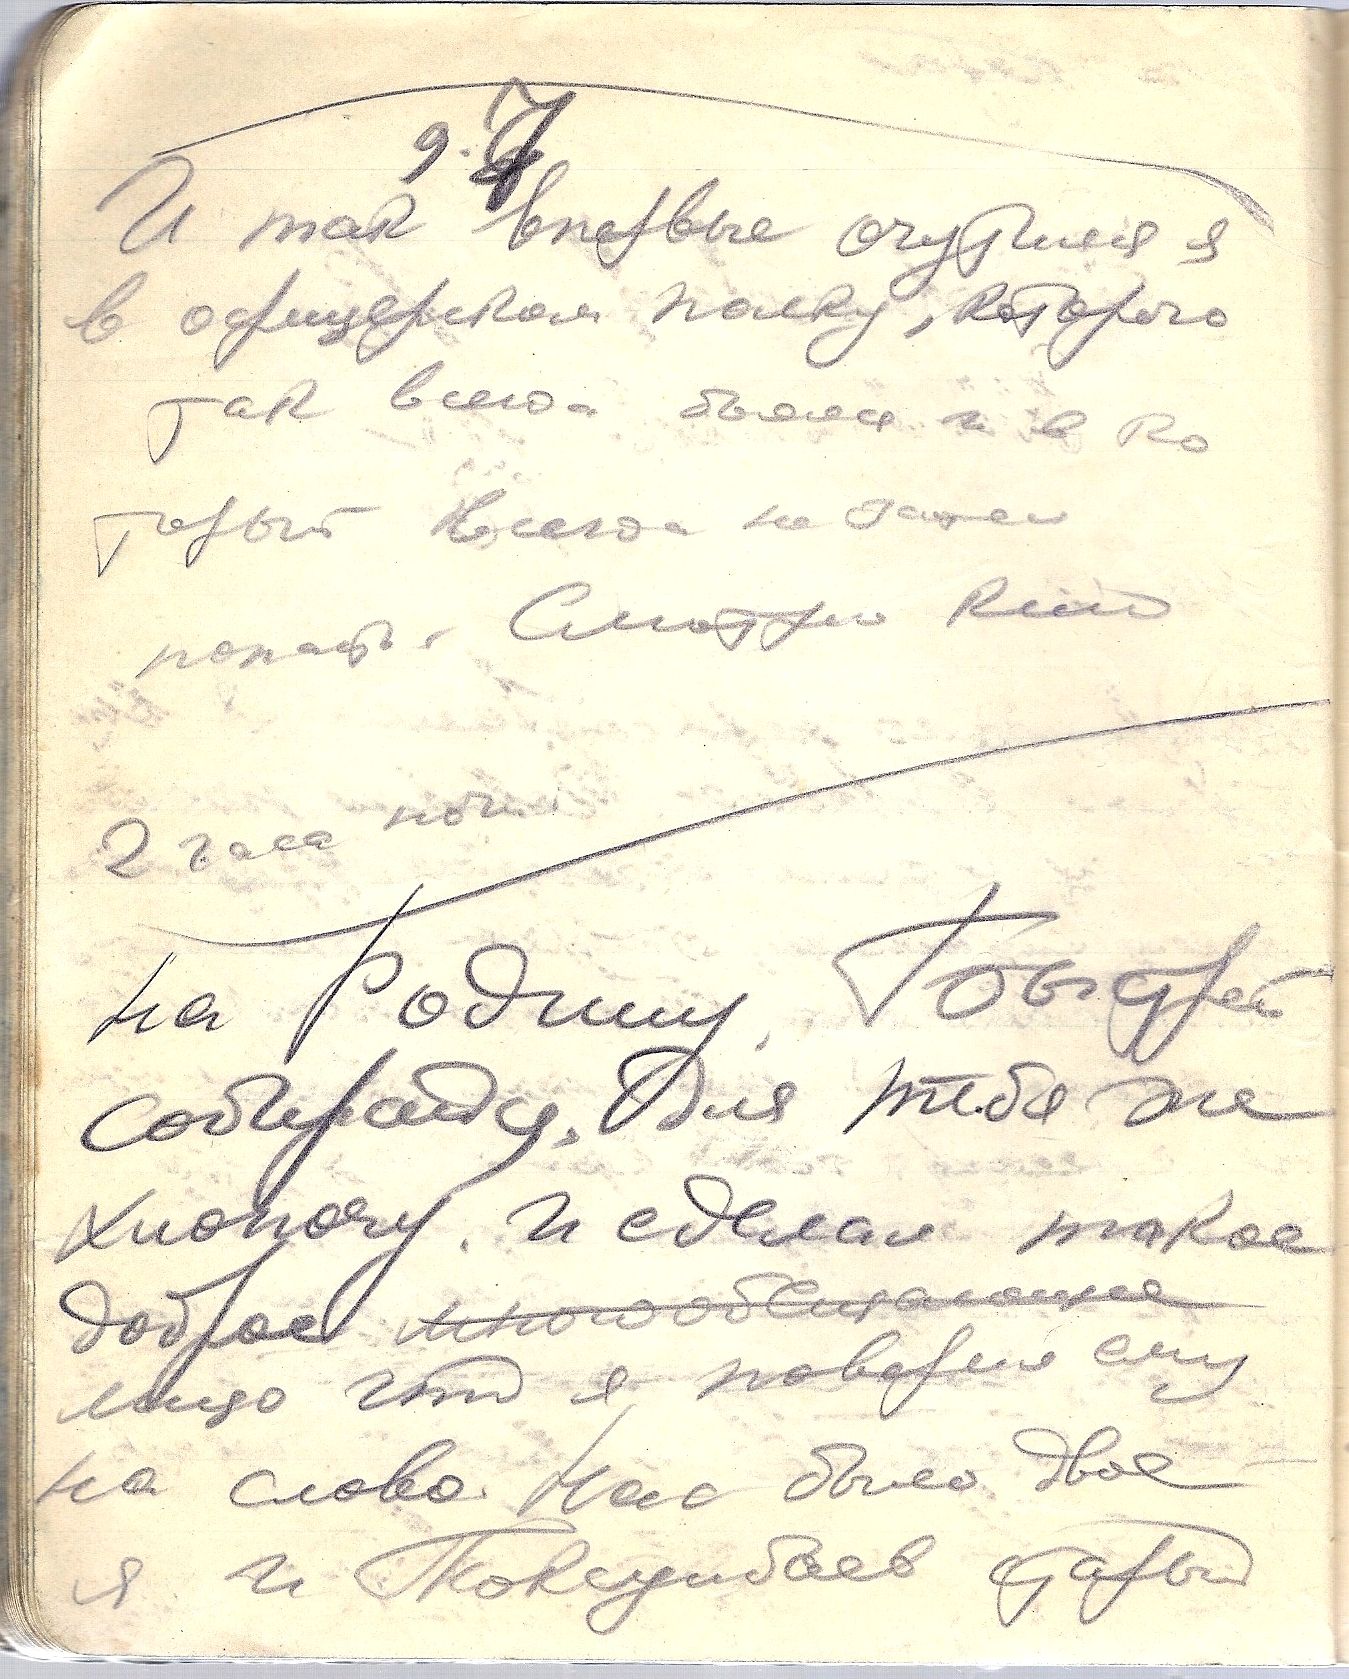 9.7
И так впервые очутился я
в офицерском полку, которого
так всегда боялся и в ко
торый всегда не желал
попасть. Смотрю кино
2 часа ночи
на Родину. Быстрей
собирайся. Для тебя же
хлопочу. и сделал такое
доброе многообещающее
лицо что я поверил ему
на слово. Нас было двое
я и Токсумбаев старый